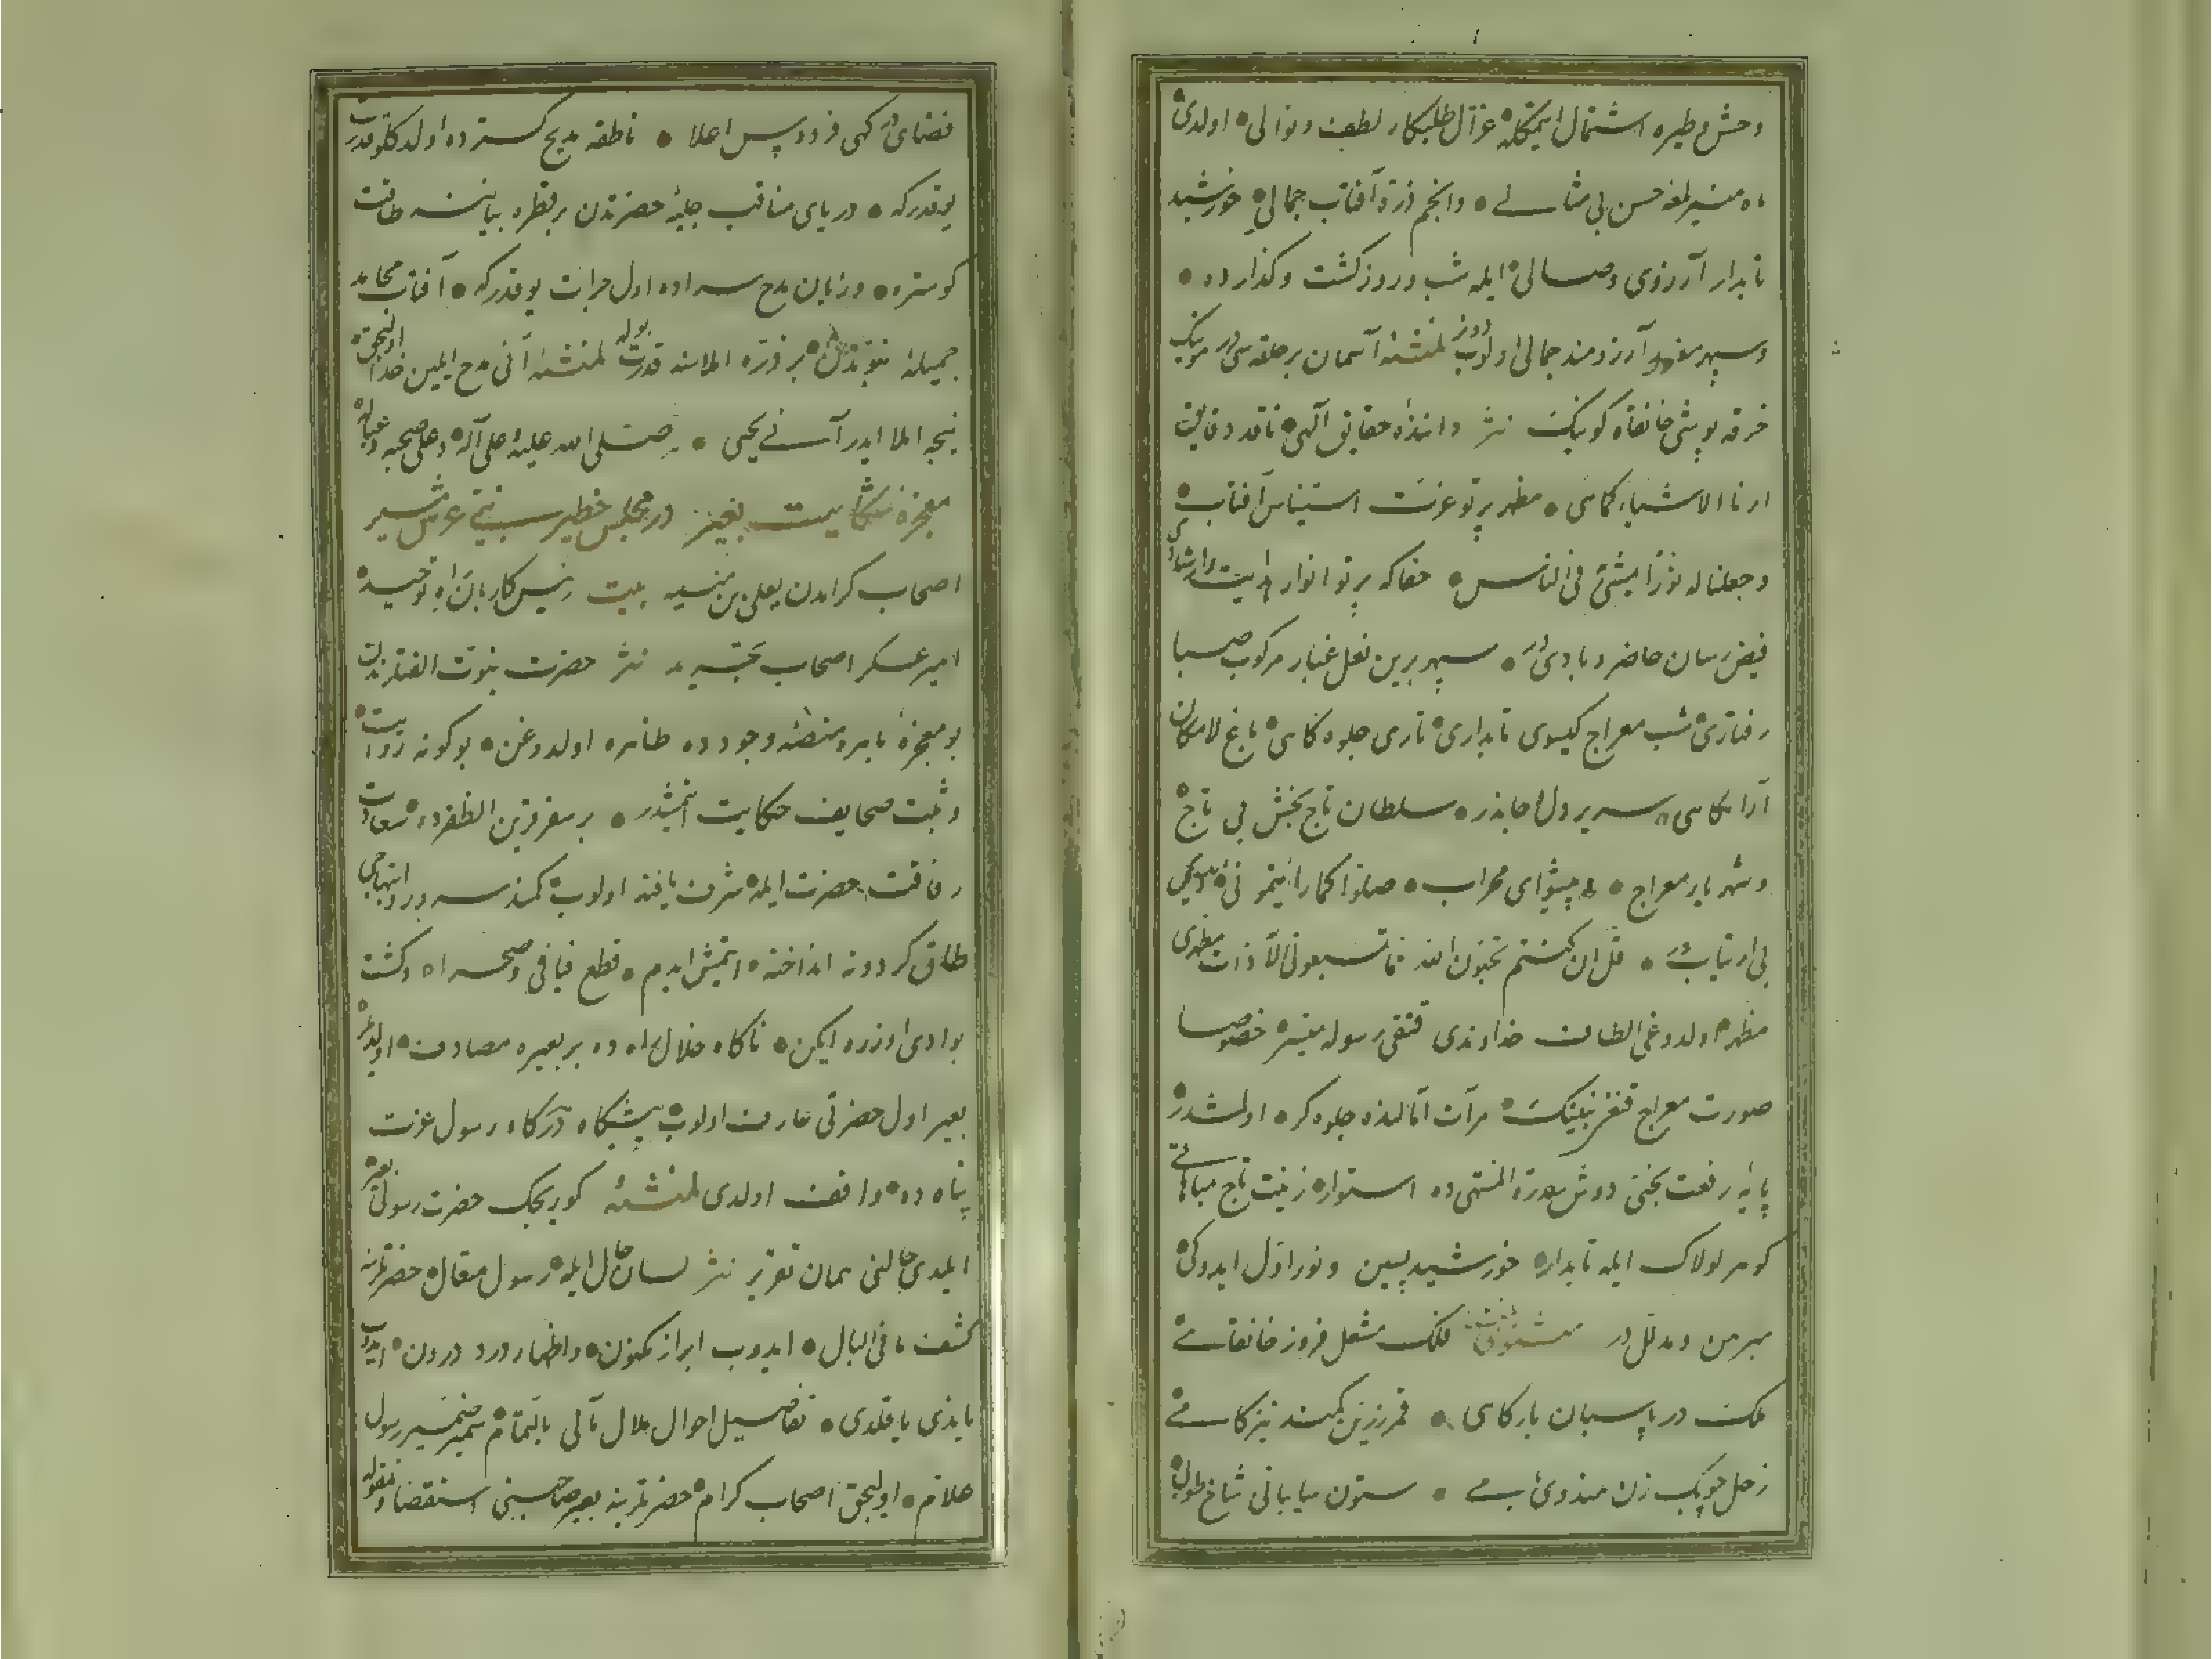 وحش و طیره اشتمال ایتمکله غزال طلبکار لطف ونوالی اولدی
ماه منیر لمعه حسن بی مثالی وانجم ذره آفتاب جمالی خورشید
تابدار آرزوی وصالی ایله شب وروز کشت وکذارده
وسپهر آرزومند جمالی اولوب لمنشئه آسمان بر حلقه سی در
خرقه پوشی خانقاه کوینک نثر داننده حقایق آلهی ناقد دقایق
ارنا الاشیاء کماهی مظهر پرتو عزت استیناس آفتاب
وجعلنا له نورا یمشی فی الناس حقاکه پرتو انوار هدایت وارشادی
فیض رسان حاضر وبادی در سپهر برین نعل غبار مرکوب صبا
رفتاری شب معراج کیسوی تابداری تاری جلوه کاهی باغ لامکان
آرامکاهی سریر دل وجاندر سلطان تاج بخش بی تاج
وشهریار معراج پیشوای محراب صلوا کما رایتمونی
بی ارتیاب در قل ان کنتم تحبون الله فاتبعونی الا ذات مطهری
مظهر اولدوغی الطاف خداوندی قنقی رسوله میسر خصوصا
صورت معراج قنغی نبینک مرآت آمالنده جلوه کر اولمشدر
پایه رفعت بختی دوش سدرة المنتهی ده استوار زینت تاج مباهاتی
کوهر لولاک ایله تابدار خورشید پسین ونور اول ایدوکی
مبرهن ومدللدر مثنوی فلک مشعل فروز خانقاهی
ملک در پاسبان بارکاهی قمر زرین کمند تیز کاهی
زحل چوبک زن هندوی بامی ستون سایبانی شاخ طوبی
فضای در کهی فردوس اعلا ناطقه مدیح کسترده اولدکلو قدرت
یوقدرکه دریای مناقب جلیه حضرتدن بر قطره بیاننه طاقت
کوستره وزبان مدح سراده اول جرات یوقدرکه آفتاب محامد
جمیله نبویدن بر ذره املاسنه قدرت بوله لمنشئه آنی مدح ایلین خدا اولیجق
نیجه املا ایدر آنی یحیی صلی الله علیه وعلی آله وعلی صحبه وعیاله
معجزه شکایت بعیر در مجلس خطیر نبی عرش سریر
اصحاب کرامدن یعلی بن منیه بیت رئیس کاربان راه توحید
امیر عسکر اصحاب تجرید نثر حضرت نبوت الفتلرندن
بو معجزه باهره منصه وجودده ظاهره اولدوغن بو کونه روایت
وثبت صحایف حکایت ایتمشدر بر سفر قرین الظفرده سعادت
رفاقت حضرت ایله شرف یافته اولوب کمند سرور وابتهاجی
طاق کردونه انداخته ایتمش ایدم قطع فیافی وصحرا ودشت
بوادی اوزره ایکن ناکاه خلال راه ده بر بعیره مصادف اولدلر
بعیر اول حضرتی عارف اولوب پیشکاه درکاه رسول عزت
پناه ده واقف اولدی لمنشئه کوریجک حضرت رسولی بعیر
ایلدی حالنی همان تقریر نثر لسان حال ایله رسول متعال حضرتلرینه
کشف ما فی البال ایدوب ابراز مکنون واظهار درد درون ایدوب
یایندی یاقلدی تفاصیل احوال ملال مآلی بالتمام سمیر ضمیر رسول
علام اولیجق اصحاب کرام حضرتلرینه بعیر صاحبینی استقصا